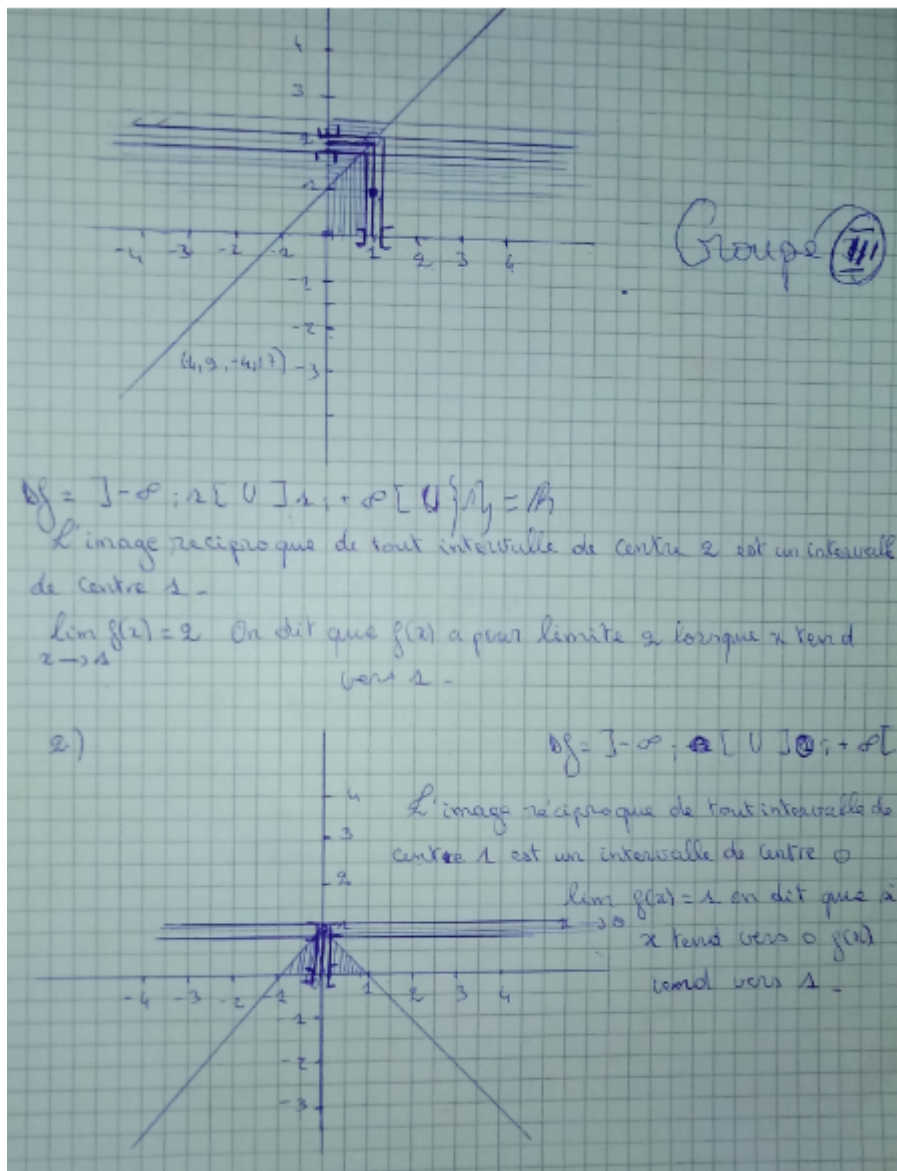 4
3
2
1
-4 -3 -2 -1 1 2 3 4
-1
-2
(4,9,-4,17) -3
Groupe III
Df = ]-∞; 1[ U ]1; +∞[ U {1} = R
L'image reciproque de tout intervalle de centre 2 est un intervall
de centre 1 -
lim f(x) = 2 On dit que f(x) a pour limite 2 lorsque x tend
x→1
vers 1 -
2)
Df = ]-∞; 0[ U ]0; +∞[
4
3
2
1
-4 -3 -2 -1 1 2 3 4
-1
-2
-3
L'image réciproque de tout intervalle de
centre 1 est un intervalle de centre 0
lim f(x) = 1 on dit que si
x→0
x tend vers 0 f(x)
tend vers 1 -